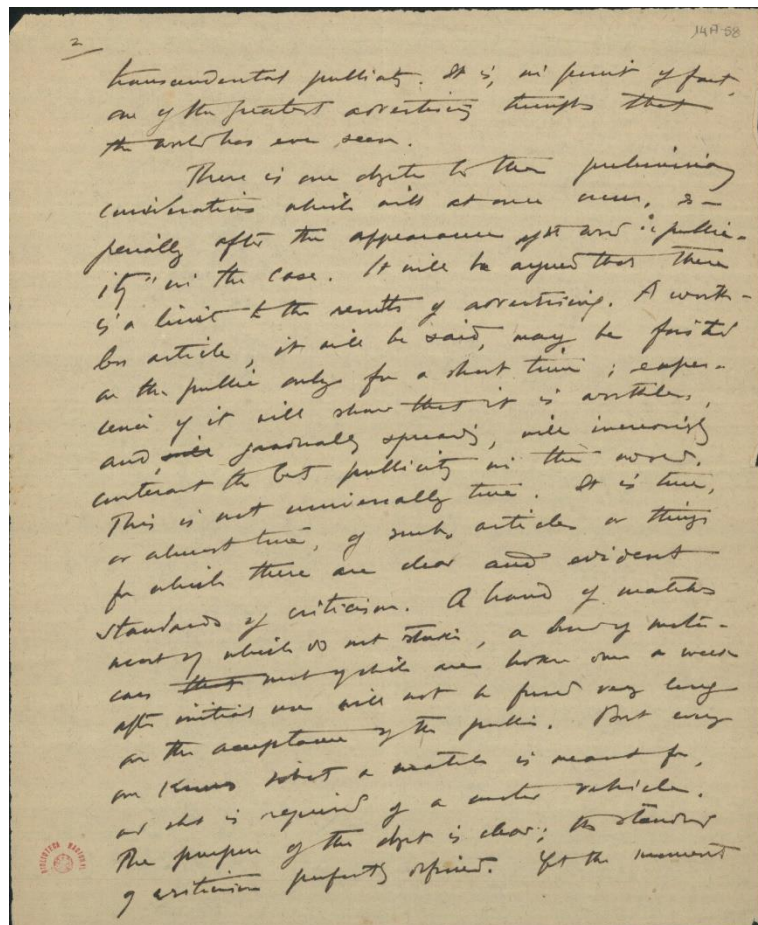 14A-58
2
transcendental publicity. It is, in point of fact,
one of the greatest advertising triumphs that
the world has ever seen.
There is one objection to these preliminary
considerations which will at once occur, es-
pecially after the appearance of the word "public-
ity" in the case. It will be argued that there
is a limit to the results of advertising. A worth-
less article, it will be said, may be foisted
on the public only for a short time; exper-
ience of it will show that it is worthless,
and, gradually spreading, will increasingly
counteract the best publicity in the world.
This is not universally true. It is true,
or almost true, of such articles or things
for which there are clear and evident
standards of criticism. A brand of matches
most of which do not strike, a brand of motor-
cars that most of which are broken one a week
after initial use will not be forced very long
on the acceptance of the public. But every
one knows what a match is meant for,
and what is required of a motor vehicle.
The purpose of the object is clear; the standard
of criticism perfectly defined. Yet the moment
BIBLIOTECA NACIONAL